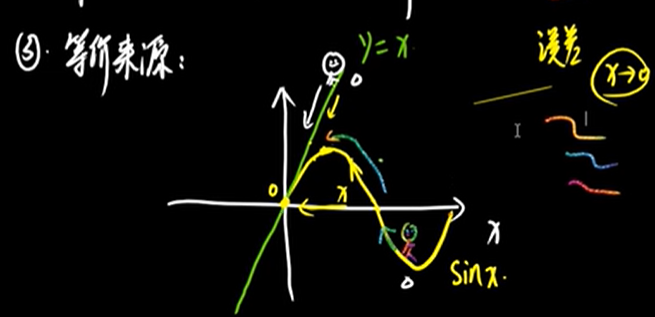 ⑤. 等价来源:
y=x
误差
x→0
0
x
x
sinx.